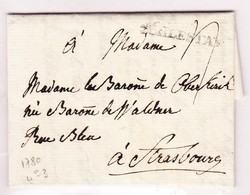 à Madame
SCHLESTAT
Madame la Baronne de Oberkirch
née Baronne de Waldner
Rue Bleu
à Strasbourg
1780